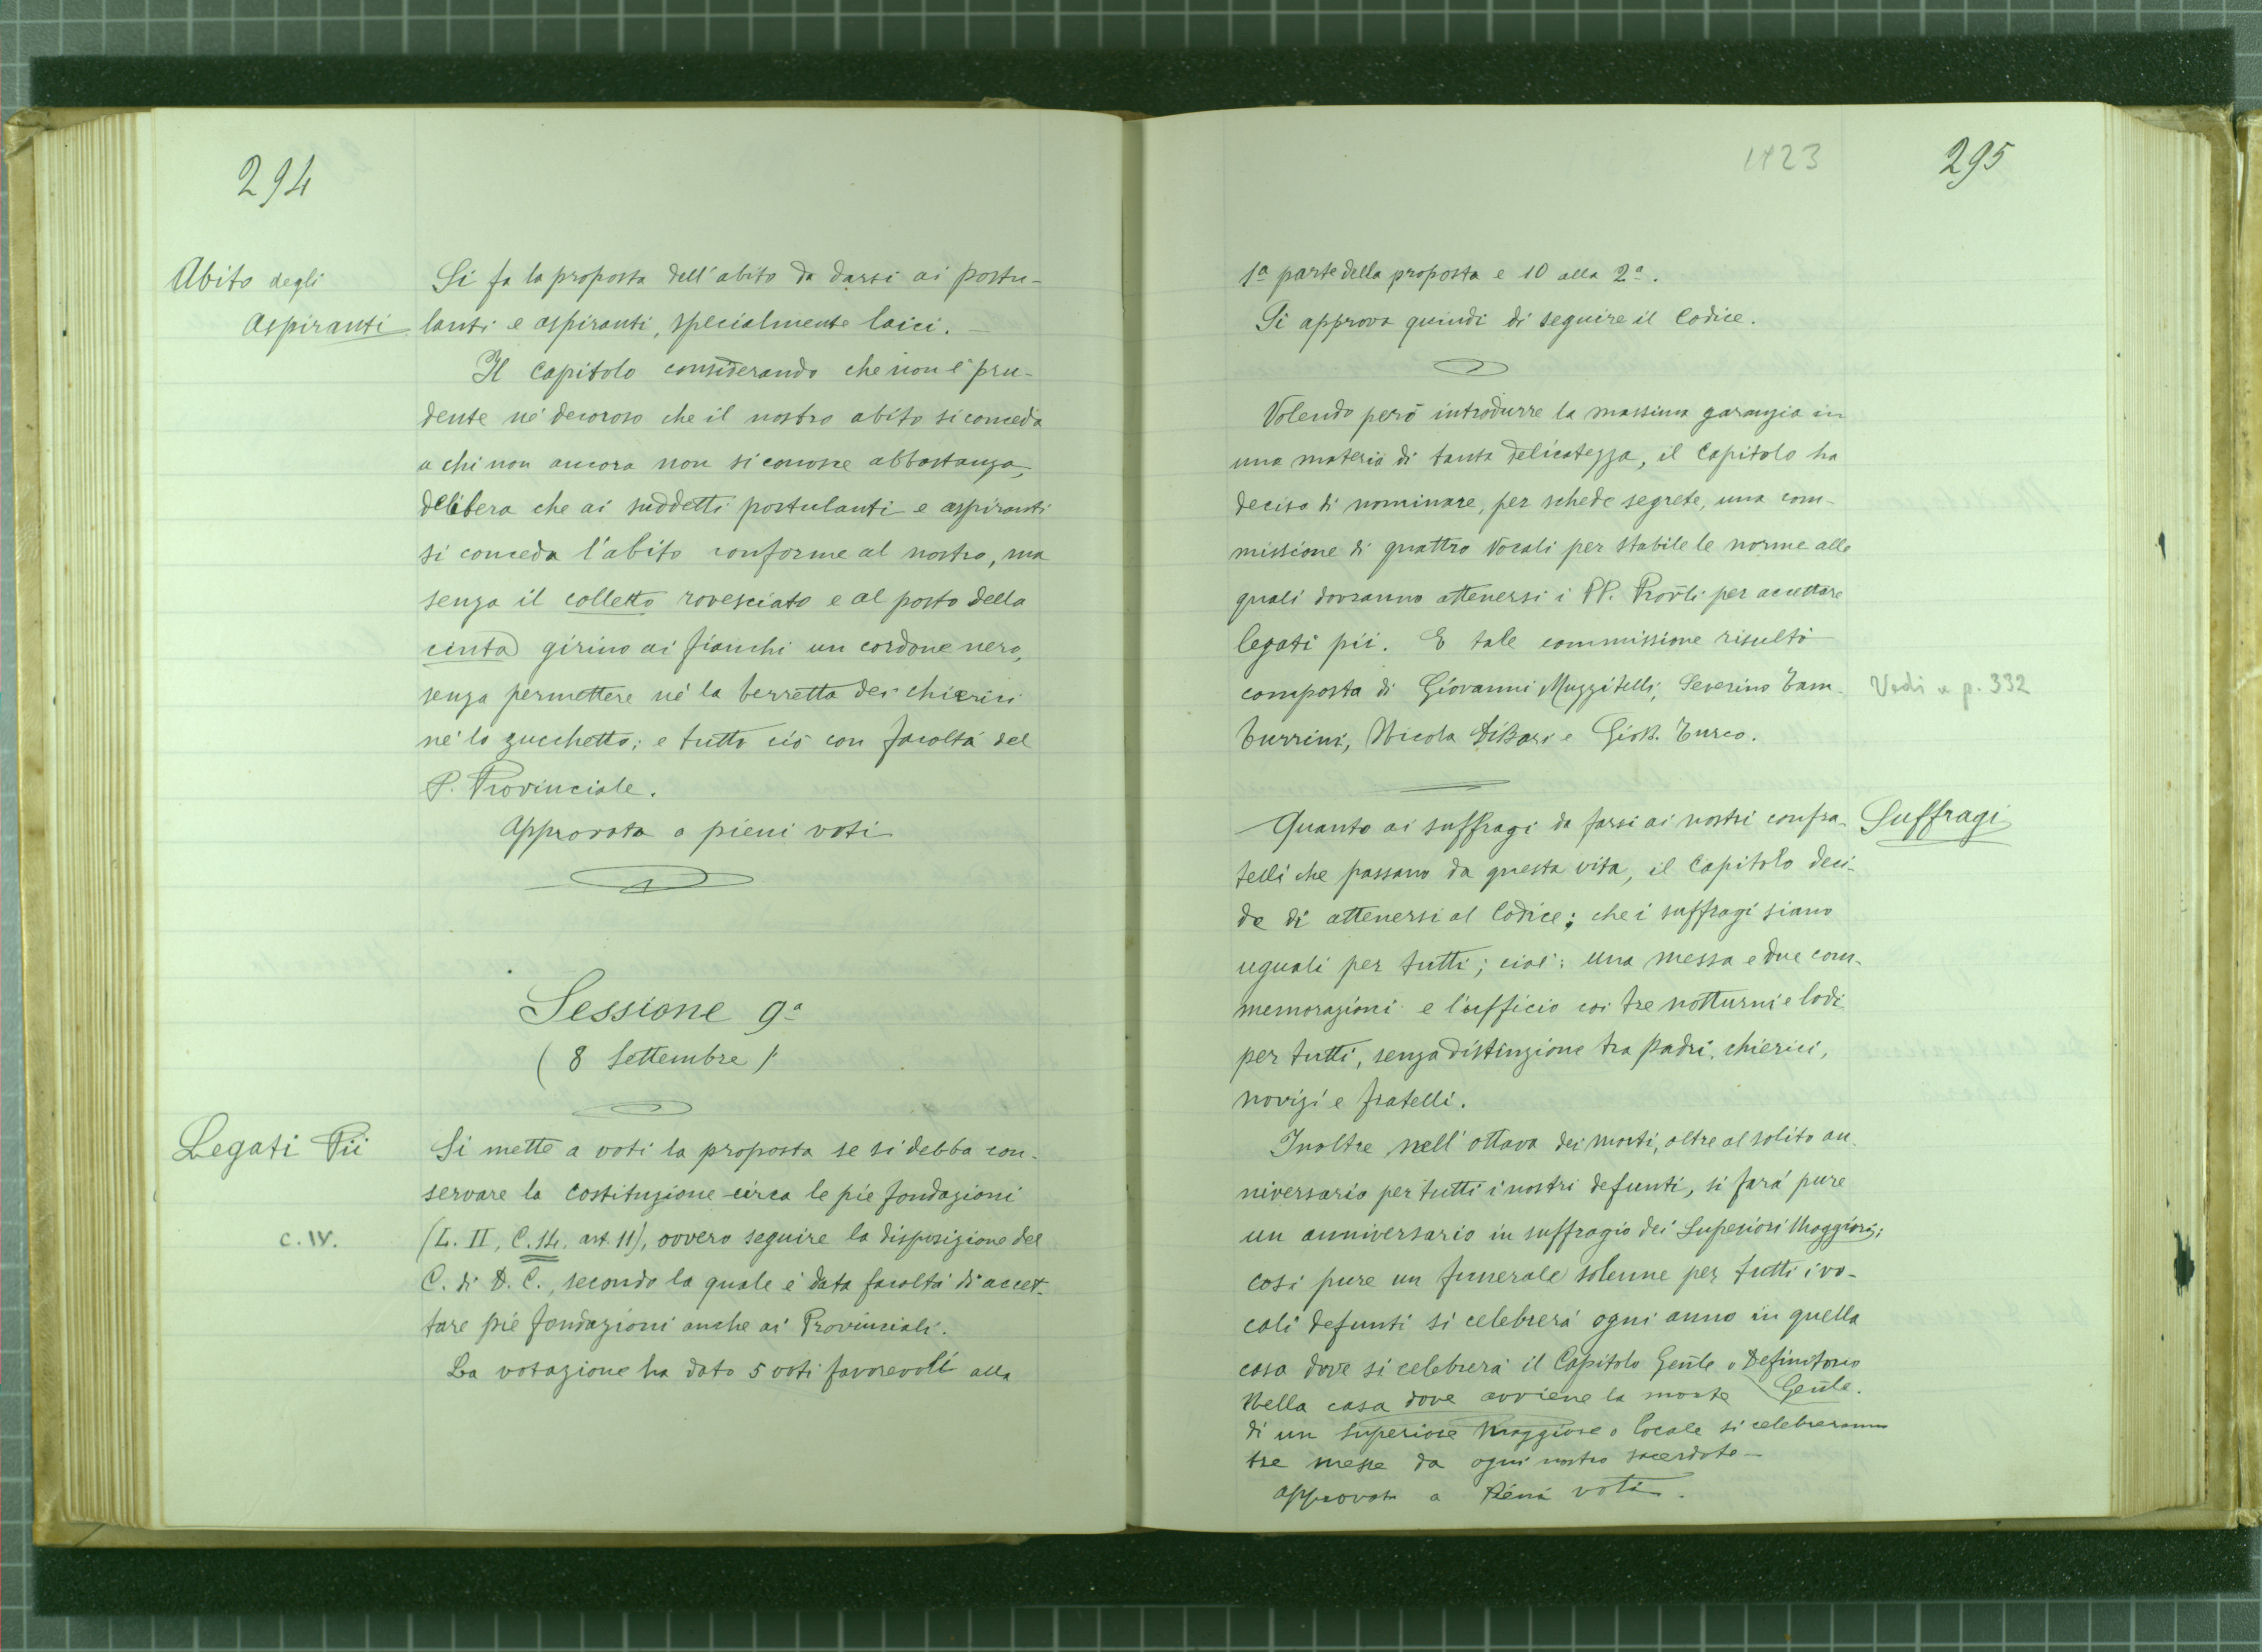 294
Abito degli
Aspiranti
Si fa la proposta dell'abito da darsi ai postu-
lanti e aspiranti, specialmente laici. —
Il Capitolo considerando che non è pru-
dente né decoroso che il nostro abito si conceda
a chi non ancora non si conosce abbastanza,
delibera che ai suddetti postulanti e aspiranti
si conceda l'abito conforme al nostro, ma
senza il colletto rovesciato e al posto della
cinta girino ai fianchi un cordone nero,
senza permettere né la berretta dei chierici
né lo zucchetto; e tutto ciò con facoltà del
P. Provinciale.
Approvata a pieni voti
Sessione 9ª
( 8 Settembre )
Legati Pii
c. IV.
Si mette a voti la proposta se si debba con-
servare la Costituzione circa le pie fondazioni
(L. II, C. 14, art. 11), ovvero seguire la disposizione del
C. di D. C., secondo la quale è data facoltà di accet-
tare pie fondazioni anche ai Provinciali.
La votazione ha dato 5 voti favorevoli alla
1923
295
1ª parte della proposta e 10 alla 2ª.
Si approva quindi di seguire il Codice.
Volendo però introdurre la massima garanzia in
una materia di tanta delicatezza, il Capitolo ha
deciso di nominare, per schede segrete, una com-
missione di quattro Vocali per stabile le norme alle
quali dovranno attenersi i PP. Prov̄li per accettare
legati pii. E tale commissione risultò
composta di Giovanni Muzzitelli, Severino Tam-
burrini, Nicola DiBari e Giob. Turco.
Vedi a p. 332
Suffragi
Quanto ai suffragi da farsi ai nostri confra-
telli che passano da questa vita, il Capitolo deci-
de di attenersi al Codice; che i suffragi siano
uguali per tutti; cioè: una messa e due com-
memorazioni e l'ufficio coi tre notturni e lodi
per tutti, senza distinzione tra padri, chierici,
novizi e fratelli.
Inoltre nell'ottava dei morti, oltre al solito an-
niversario per tutti i nostri defunti, si farà pure
un anniversario in suffragio dei Superiori Maggiori;
così pure un funerale solenne per tutti i vo-
cali defunti si celebrerà ogni anno in quella
casa dove si celebrerà il Capitolo Gen̄le o Definitorio
Gen̄le.
Nella casa dove avviene la morte
di un Superiore Maggiore o locale si celebreranno
tre messe da ogni nostro sacerdote —
approvata a Pieni voti.